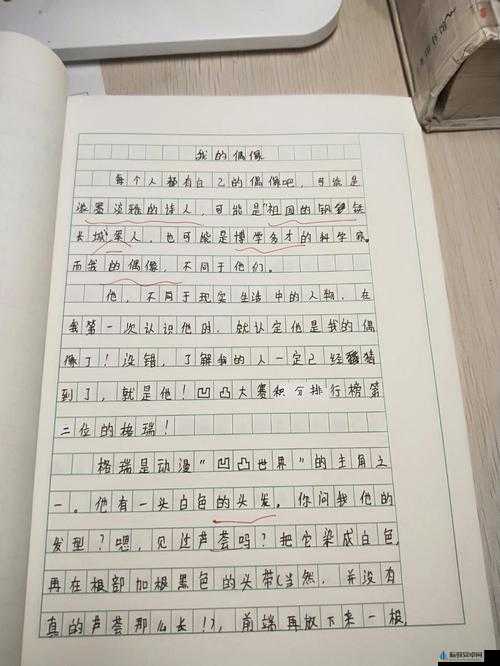 我的偶像
每个人都有自己的偶像吧，可能是
淡墨淡雅的诗人，可能是“祖国的钢铁
长城”军人，也可能是博学多才的科学家。
而我的偶像，不同于他们。
他，不同于现实生活中的人物，在
我第一次认识他时，就认定他是我的偶
像了！没错，了解我的人一定已经猜
到了，就是他！凹凸大赛积分排行榜第
二位的格瑞！
格瑞是动漫“凹凸世界”的主角之
一。他有一头白色的头发。你问我他的
发型？嗯，见过芦荟吗？把它染成白色，
再在根部加根黑色的头带（当然，并没有
真的芦荟那么长！），前端再放下来一根，